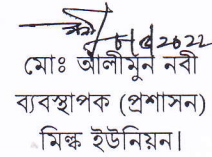 মোঃ আলীমুন নবী
ব্যবস্থাপক (প্রশাসন)
মিল্ক ইউনিয়ন।